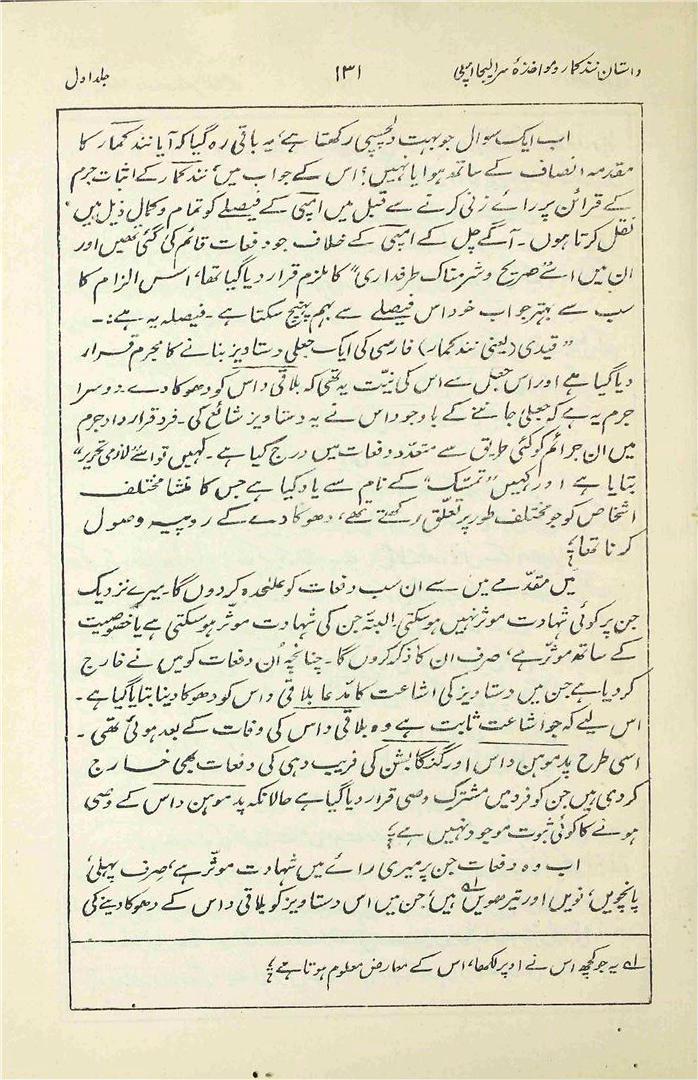 داستان نند کمار و مواخذۂ سر الیجا امپی ۱۳۱ جلد اول
اب ایک سوال جو بہت دلچسپی رکھتا ہے، یہ باقی رہ گیا کہ آیا نند کمار کا
مقدمہ انصاف کے ساتھ ہوا یا نہیں؟ اس کے جواب میں، نند کمار کے اثبات جرم
کے قرائن پر رائے زنی کرنے سے قبل میں امپی کے فیصلے کو تمام و کمال ذیل میں
نقل کرتا ہوں۔ آگے چل کے امپی کے خلاف جو دفعات قائم کی گئی تھیں اور
ان میں اسے "صریح و شرمناک طرفداری" کا ملزم قرار دیا گیا تھا، اس الزام کا
سب سے بہتر جواب خود اس فیصلے سے بہم پہنچ سکتا ہے۔ فیصلہ یہ ہے:۔
"قیدی (یعنی نند کمار) فارسی کی ایک جعلی دستاویز بنانے کا مجرم قرار
دیا گیا ہے اور اس جعل سے اس کی نیت یہ تھی کہ بلاقی داس کو دھوکا دے۔ دوسرا
جرم یہ ہے کہ جعلی جاننے کے باوجود اس نے یہ دستاویز شائع کی۔ فرد قرارداد جرم
میں ان جرائم کو کئی طریق سے متعدد دفعات میں درج کیا ہے۔ کہیں تو اسے "لازمی تحریر"
بتایا ہے اور کہیں "تمسک" کے نام سے یاد کیا ہے جس کا منشا مختلف
اشخاص کو جو مختلف طور پر تعلق رکھتے تھے، دھوکا دے کے روپیہ وصول
کرنا تھا؛
میں مقدمے میں سے ان سب دفعات کو علیٰحدہ کر دوں گا۔ میرے نزدیک
جن پر کوئی شہادت موثر نہیں ہو سکتی البتہ جن کی شہادت موثر ہو سکتی ہے یا خصوصیت
کے ساتھ موثر ہے، صرف ان کا ذکر کروں گا۔ چنانچہ اُن دفعات کو میں نے خارج
کر دیا ہے جن میں دستاویز کی اشاعت کا مدعا بلاقی داس کو دھوکا دینا بتایا گیا ہے۔
اس لیے کہ جو اشاعت ثابت ہے وہ بلاقی داس کی وفات کے بعد ہوئی تھی۔
اسی طرح پدموہن داس اور گنگابشن کی فریب دہی کی دفعات بھی خارج
کر دی ہیں جن کو فرد میں مشترک وصی قرار دیا گیا ہے حالانکہ پدموہن داس کے وصی
ہونے کا کوئی ثبوت موجود نہیں ہے؛
اب وہ دفعات جن پر میری رائے میں شہادت موثر ہے، صرف پہلی،
پانچویں، نویں اور تیرھویں لہ ہیں، جن میں اس دستاویز کو بلاقی داس کے دھوکا دینے کی
لہ یہ جو کچھ اس نے اوپر لکھا، اس کے معارض معلوم ہوتا ہے؛